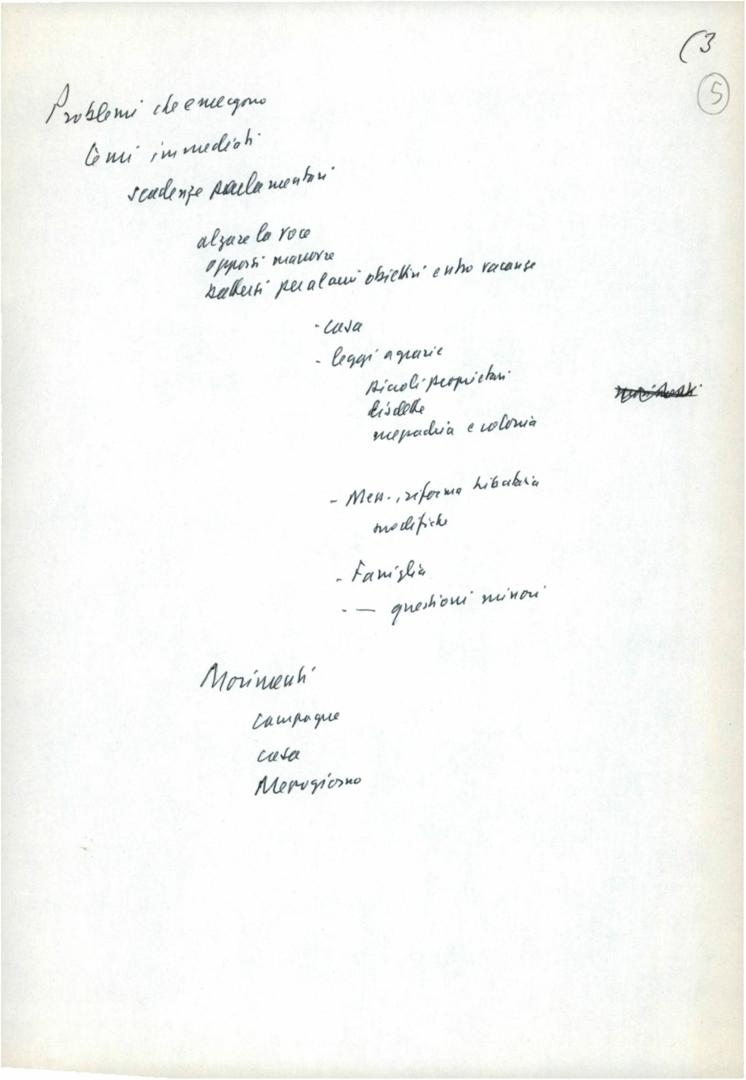 (3
5
Problemi che emergono
temi immediati
scadenze parlamentari
alzare la voce
opporsi manovre
battersi per alcuni obiettivi entro vacanze
- casa
- leggi agrarie
piccoli proprietari
disdette
mezzadria e colonia
- riforma tributaria
modifiche
- Famiglia
- — questioni minori
Movimenti
campagne
casa
Mezzogiorno